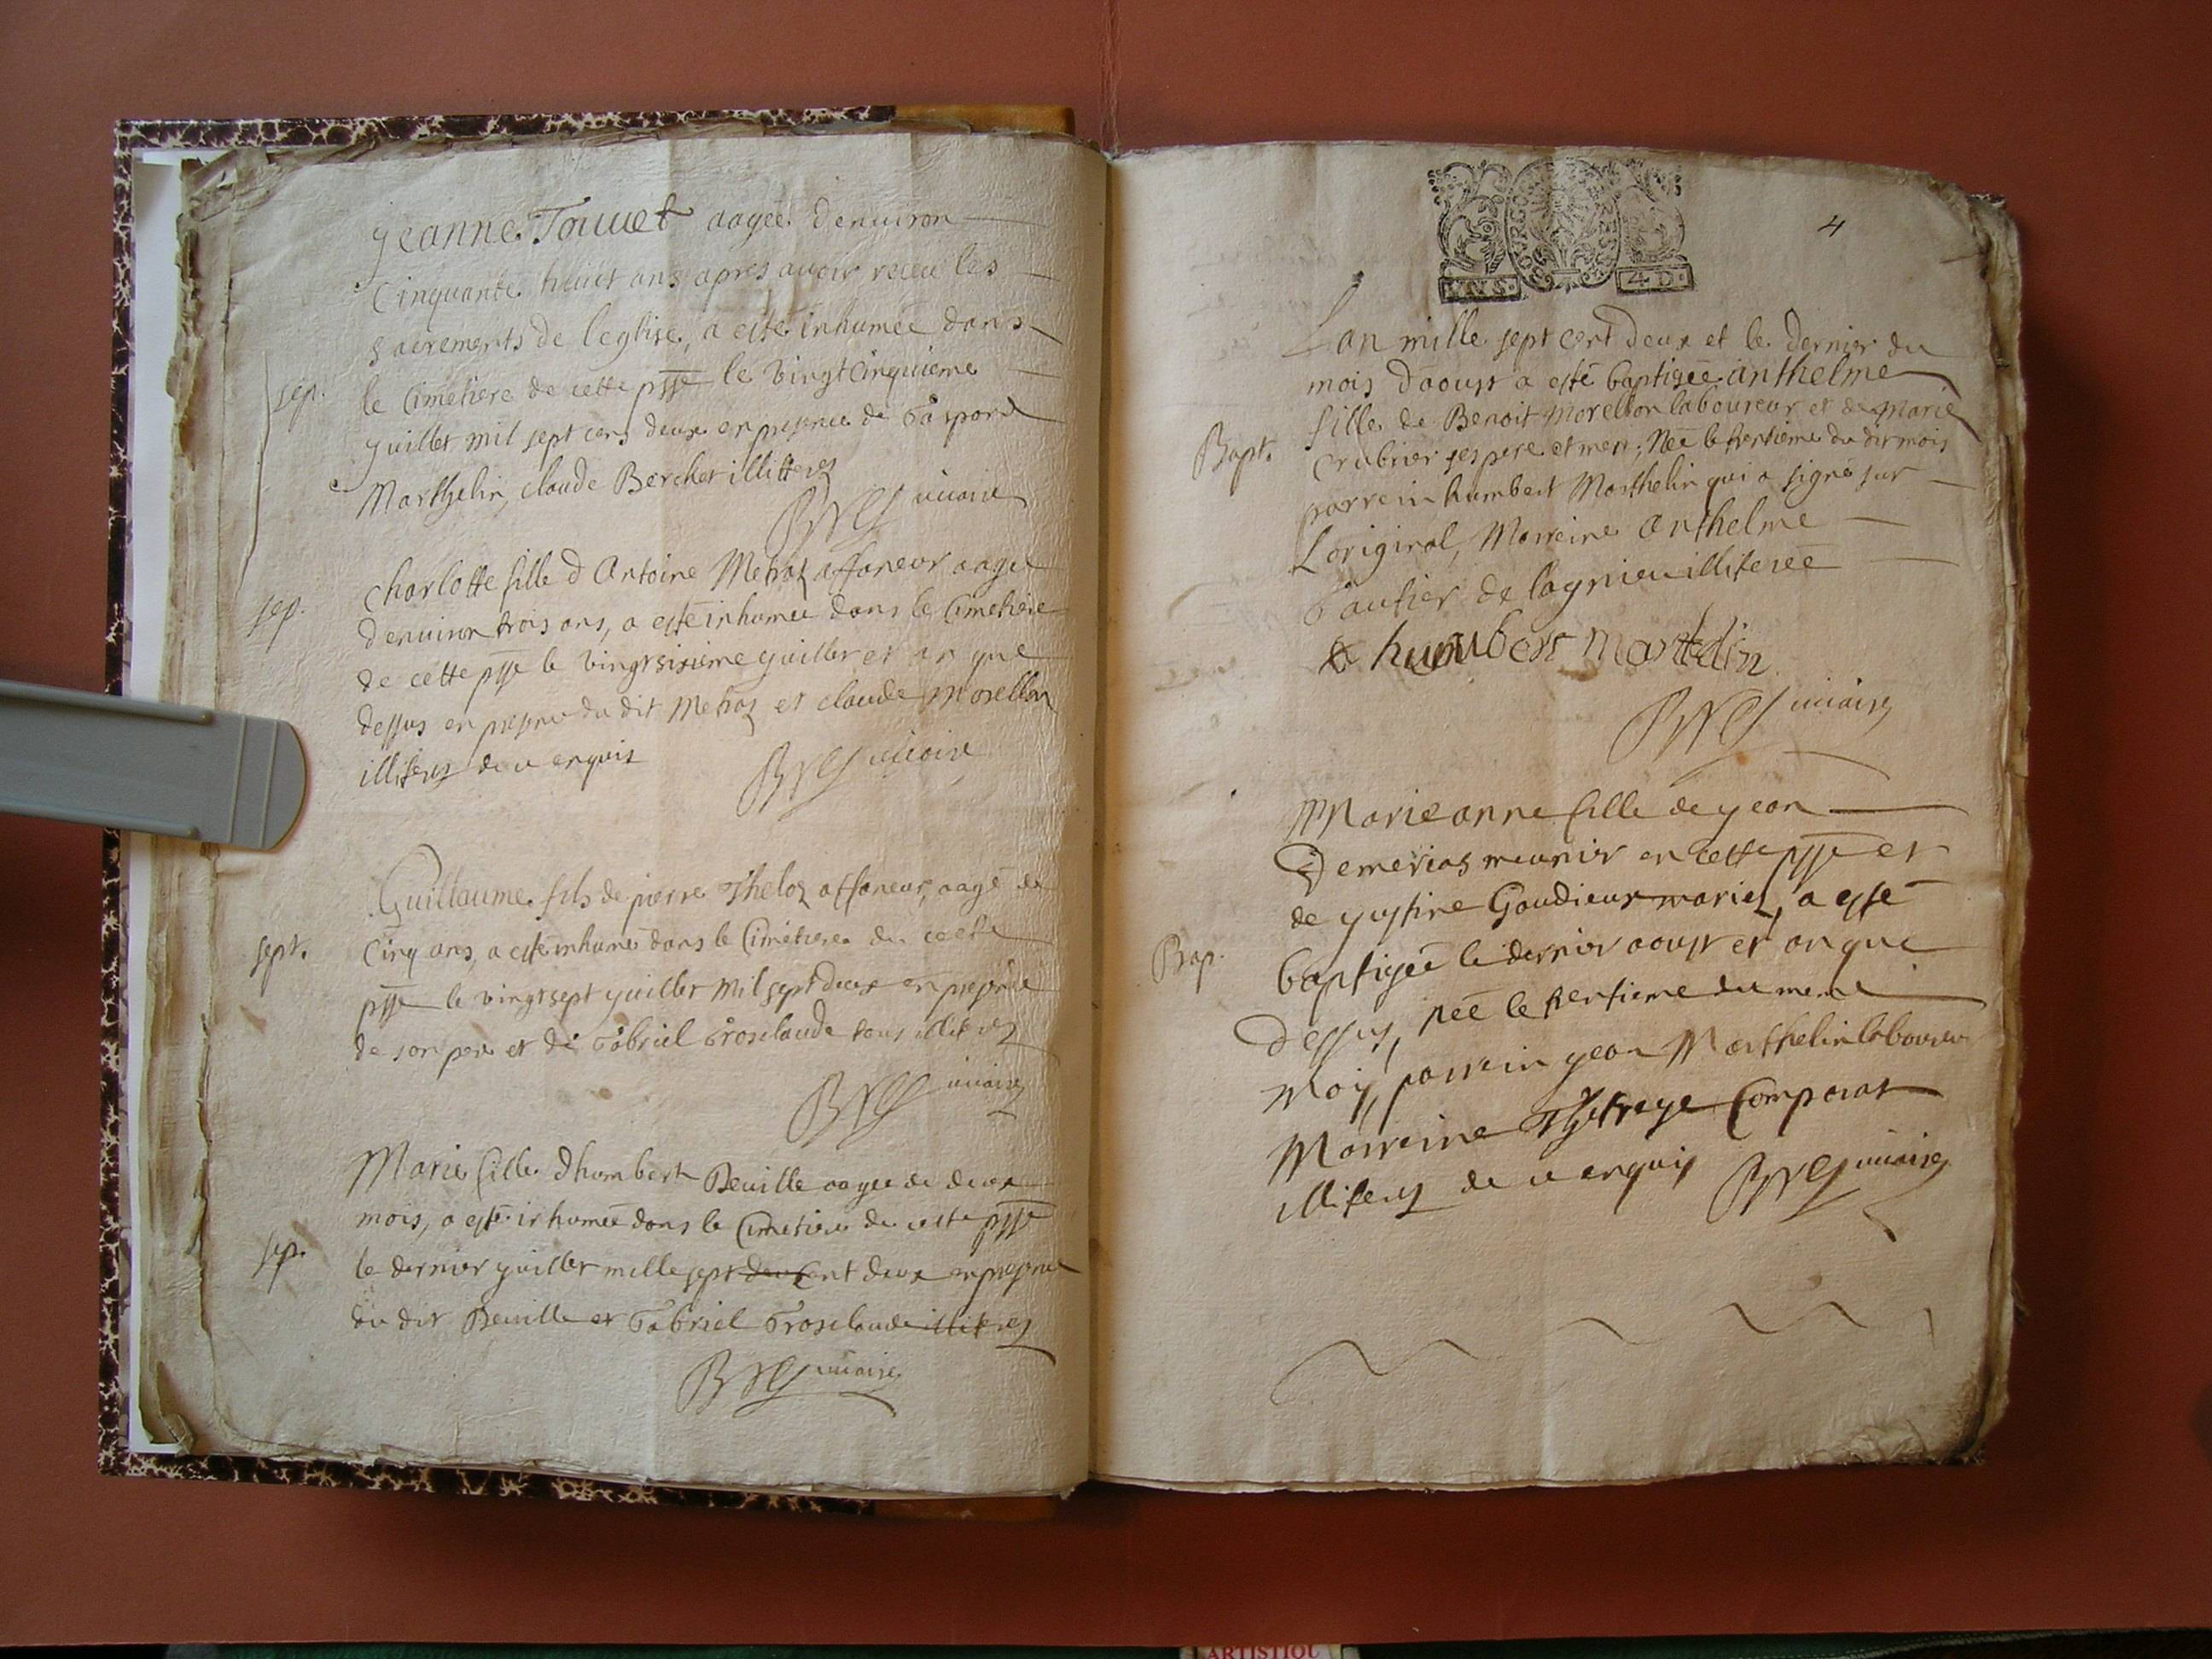 Jeanne Touuet aagée denuiron
Cinquante huict ans apres auoir receu les
sacrements de leglise, a esté inhumée dans
sep.
le Cimetiere de cette psse le vingt cinquieme
yuillet mil sept cens deux en presence de Gaspard
Marthelin, claude Berchet illitteres
vicaire
charlotte fille d Antoine Metraz affaneur aagée
sep.
denuiron trois ans, a esté inhumée dans le Cimetiere
de cette psse le vingt sixieme yuillet et an que
dessus en presence du dit Metraz et claude Morellon
illiteres de ce enquis
vicaire
Guillaume fils de pierre Theloz affaneur, aagé de
sept.
Cinq ans, a esté inhumé dans le Cimetiere de cette
psse le vingt sept yuillet mil sept deux en presence
de son pere et de Gabriel Grosclaude tous illiteres
vicaire
Marie fille dhumbert Beuille aagée de deux
mois, a esté inhumée dans le Cimetiere de cette psse
sep.
le dernier yuillet mille sept deux Cent deux en presence
du dit Beuille et Gabriel Grosclaude illiteres
vicaire
4
4 D.
Lan mille sept cent deux et le dernier du
mois daoust a esté baptisée anthelme
fille de Benoit Morellon laboureur et de Marie
Bapt.
Crubrier ses pere et mere, Née le trentieme du dit mois
parrein humbert Marthelin qui a signé sur
Loriginal, Marreine anthelme
Gautier de lagnieu illiterée
humbert martelin
vicaire
Marie anne fille de yean
Demerias meunier en cette psse et
de yustine Gaudieux mariez, a esté
Bap.
baptisée le dernier aoust et an que
dessus, née le trentieme du meme
Moy, parrein yean Marthelin laboureur
Marreine Comparat
illiteres de ce enquis
vicaire
ARTISTIQU